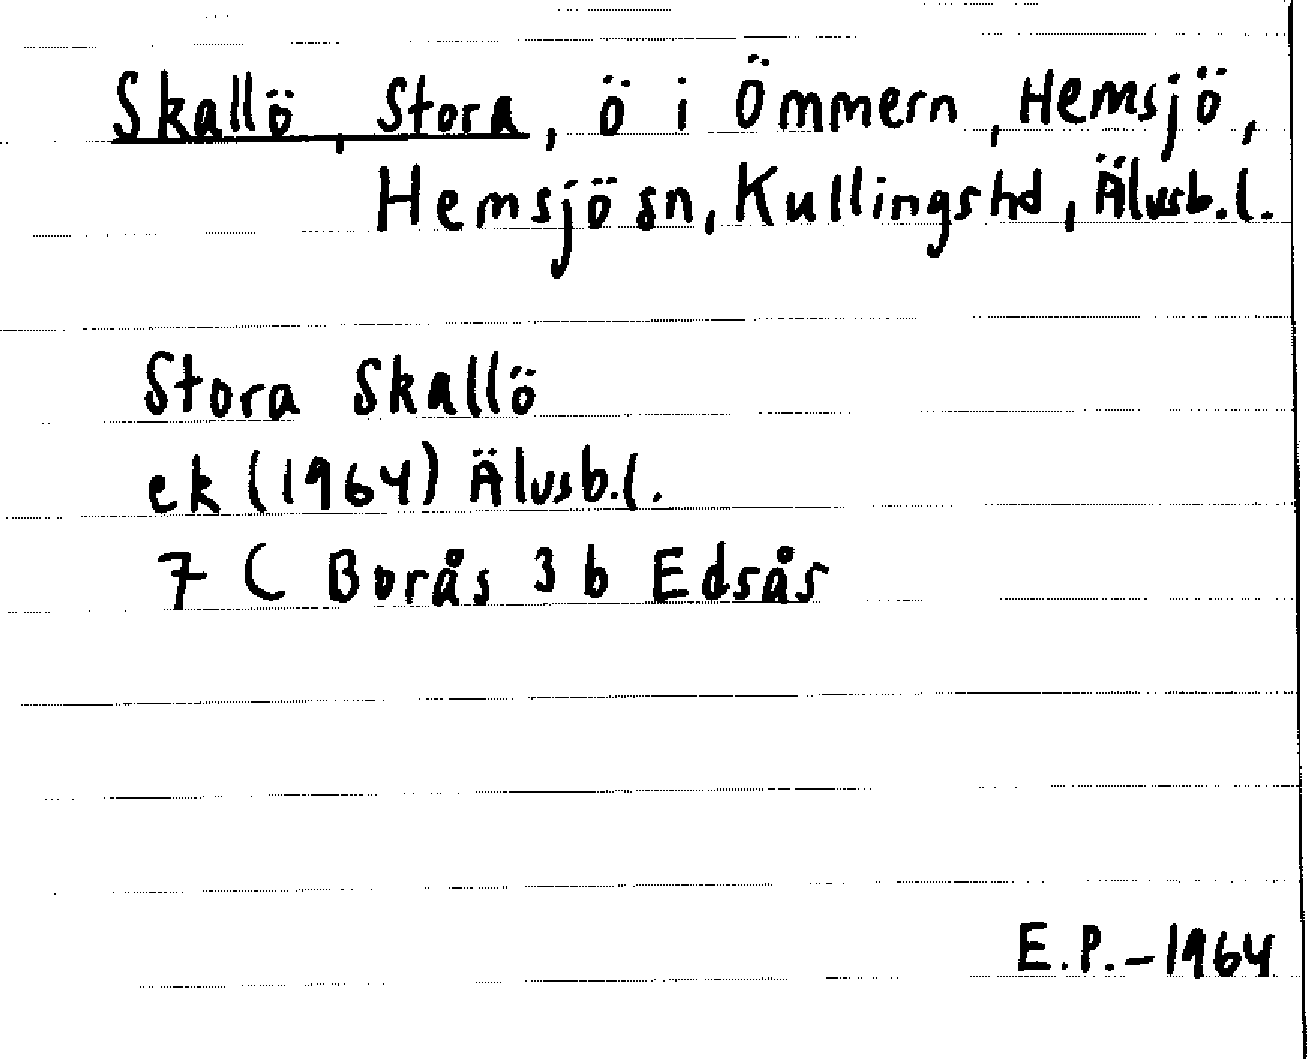 Skallö, Stora, ö i Ömmern, Hemsjö,
Hemsjö sn, Kullings hd, Älvsb.l.
Stora Skallö
ek (1964) Älvsb.l.
7 C Borås 3 b Edsås
E.P.-1964